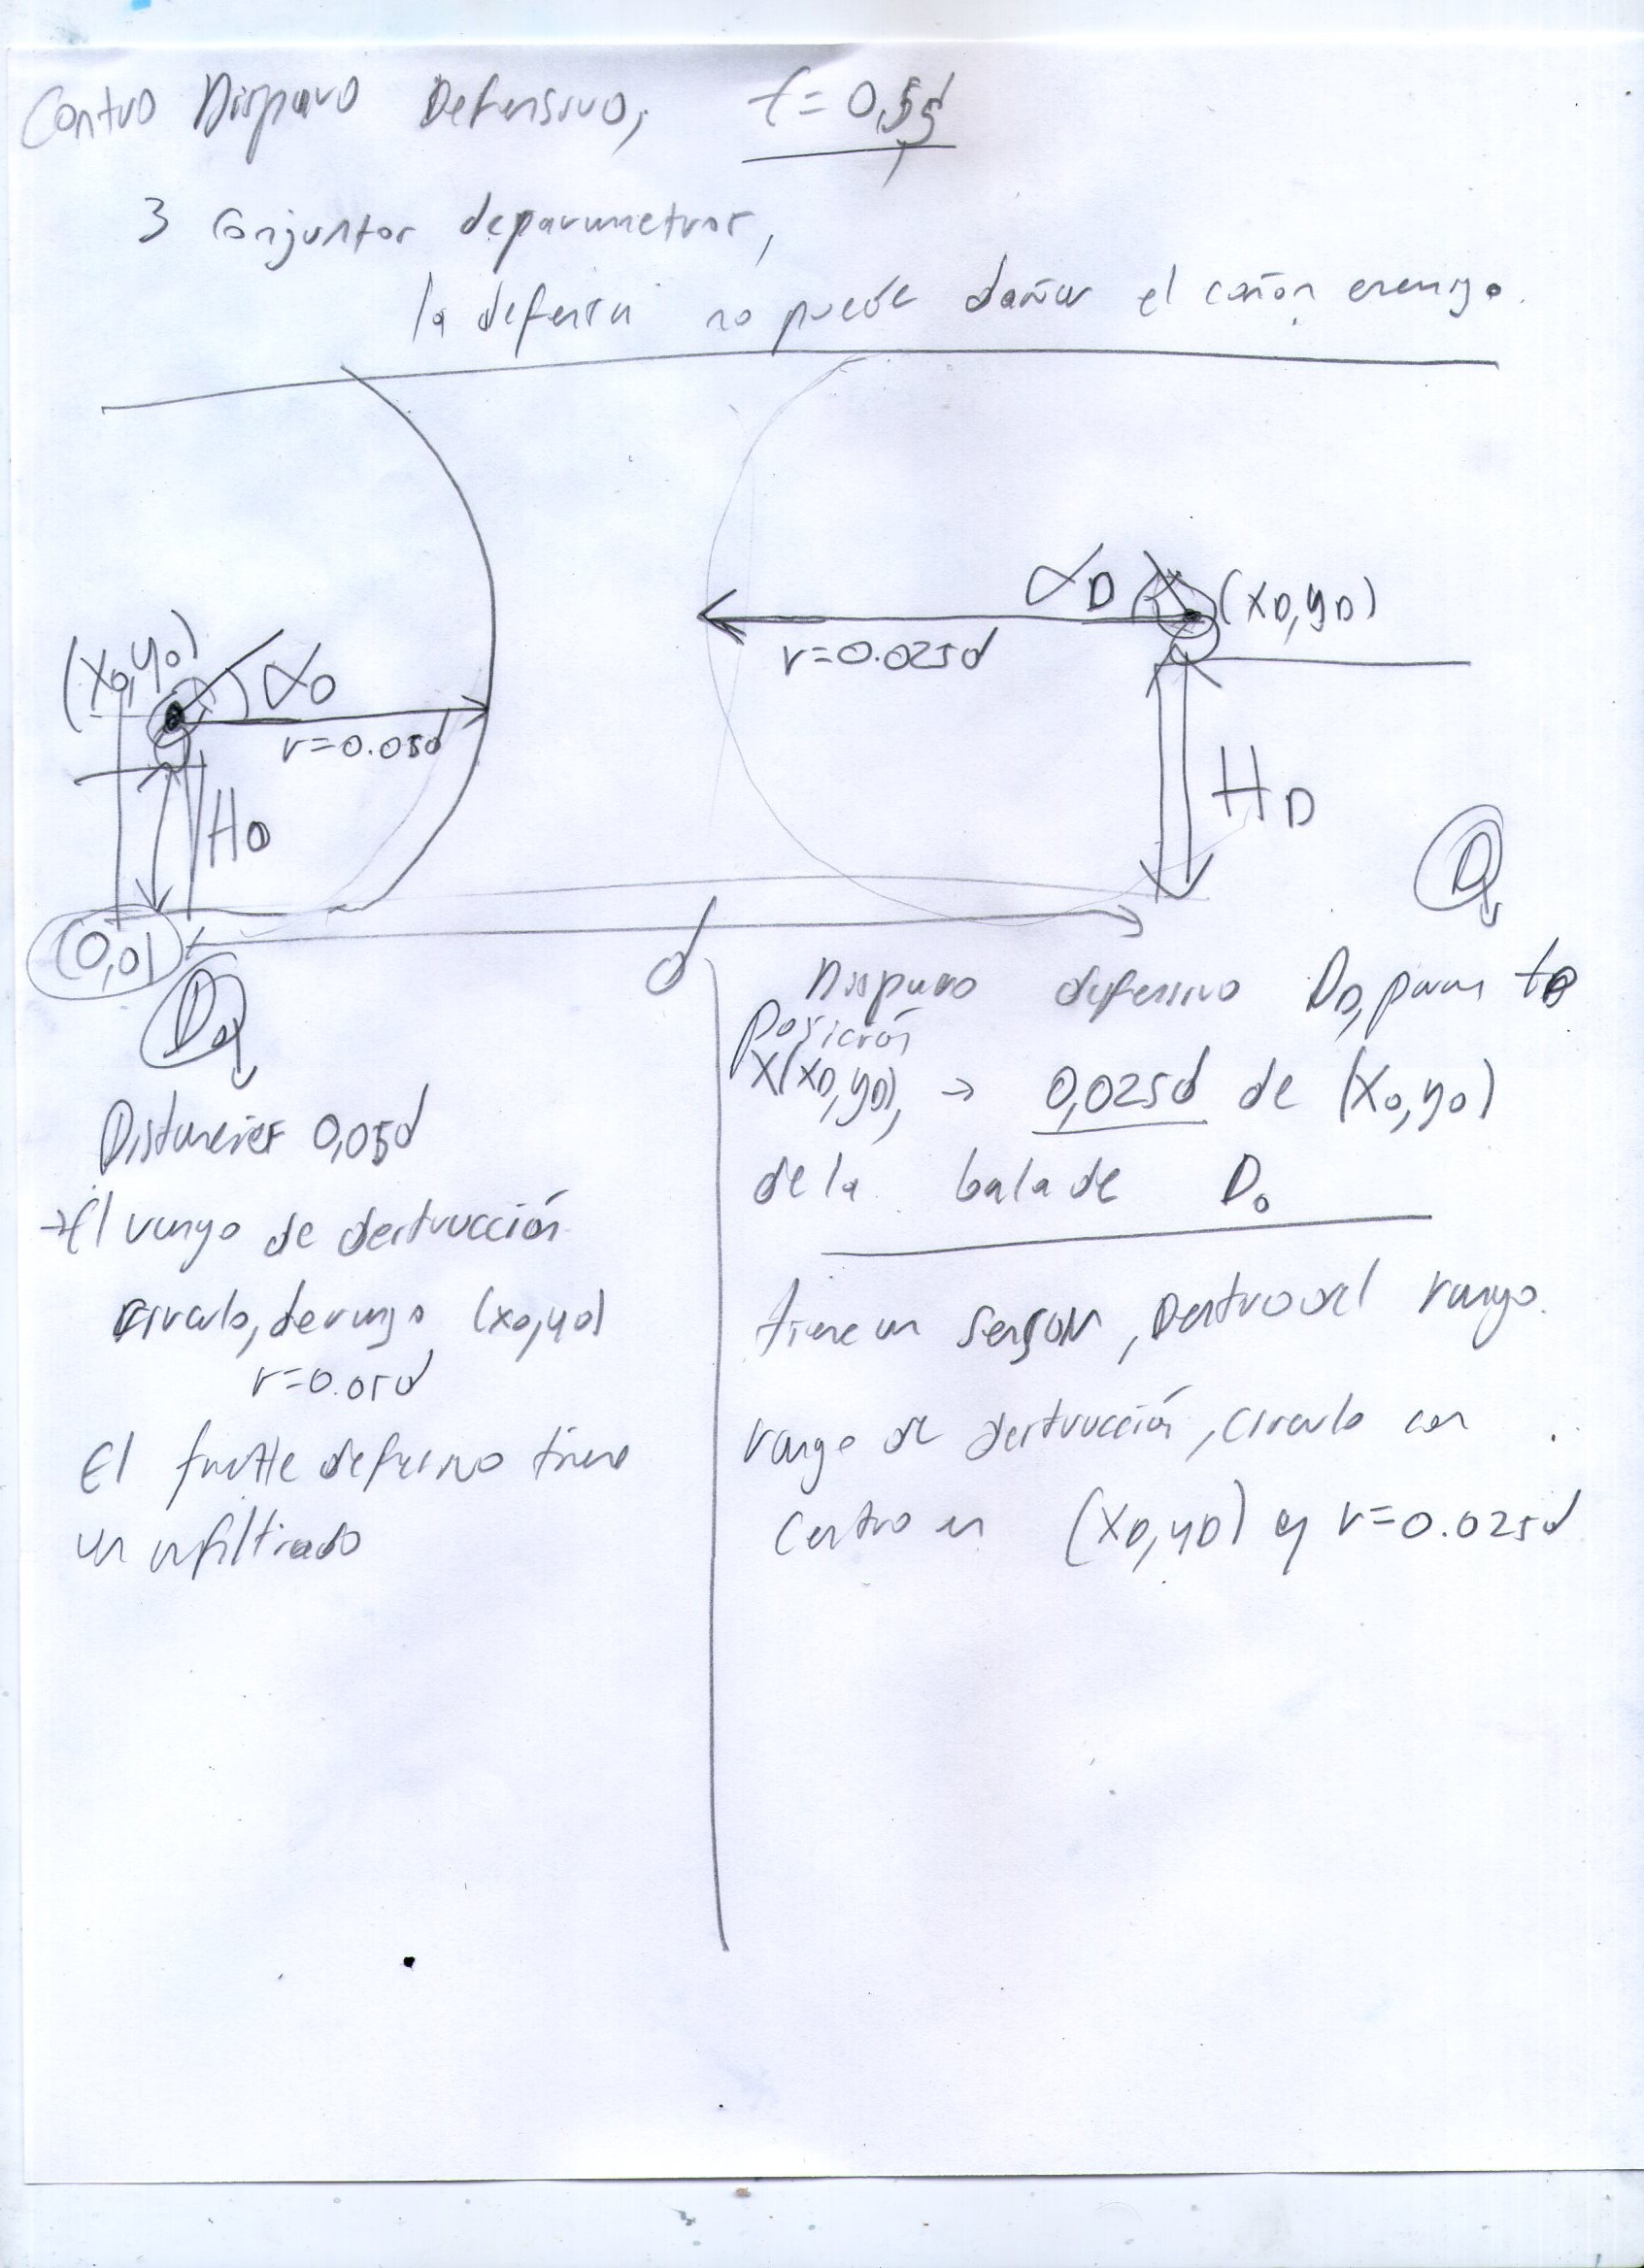 Contra Disparo Defensivo,
3 conjuntos de parametros,
la defensa no puede dañar el cañon enemigo.
(x₀,y₀)
α₀
r=0.05d
H₀
αD
(xD,yD)
r=0.025d
HD
D
(0,0)
d
D₀
Distancias 0,05d
→ El rango de destrucción
circulo, de rango (x₀,y₀)
r=0.05d
El frente defensivo tiene
un infiltrado
Disparo defensivo DD, para
Posición
X(xD,yD), → 0,025d de (x₀,y₀)
de la bala de D₀
tiene un sensor, Dentro del rango.
rango de destrucción, circulo con
centro en (xD,yD) y r=0.025d